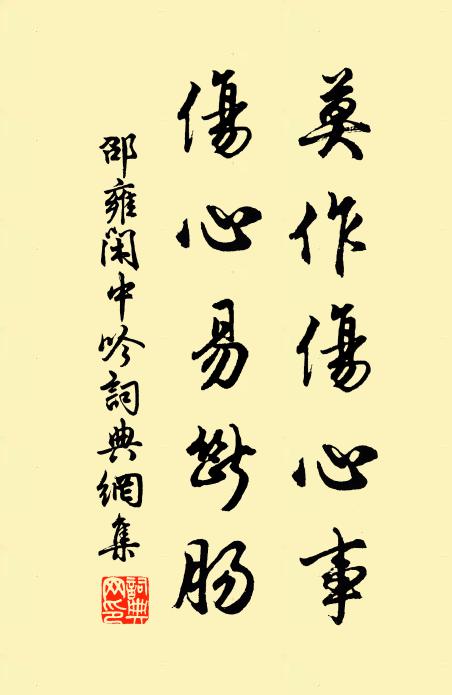 莫作傷心事
傷心易斷腸
邵雍閑中吟詞典網集
詞典网印